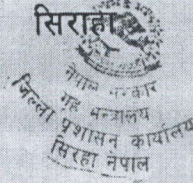 सिराहा
नेपाल सरकार
गृह मन्त्रालय
जिल्ला प्रशासन कार्यालय
सिरहा नेपाल